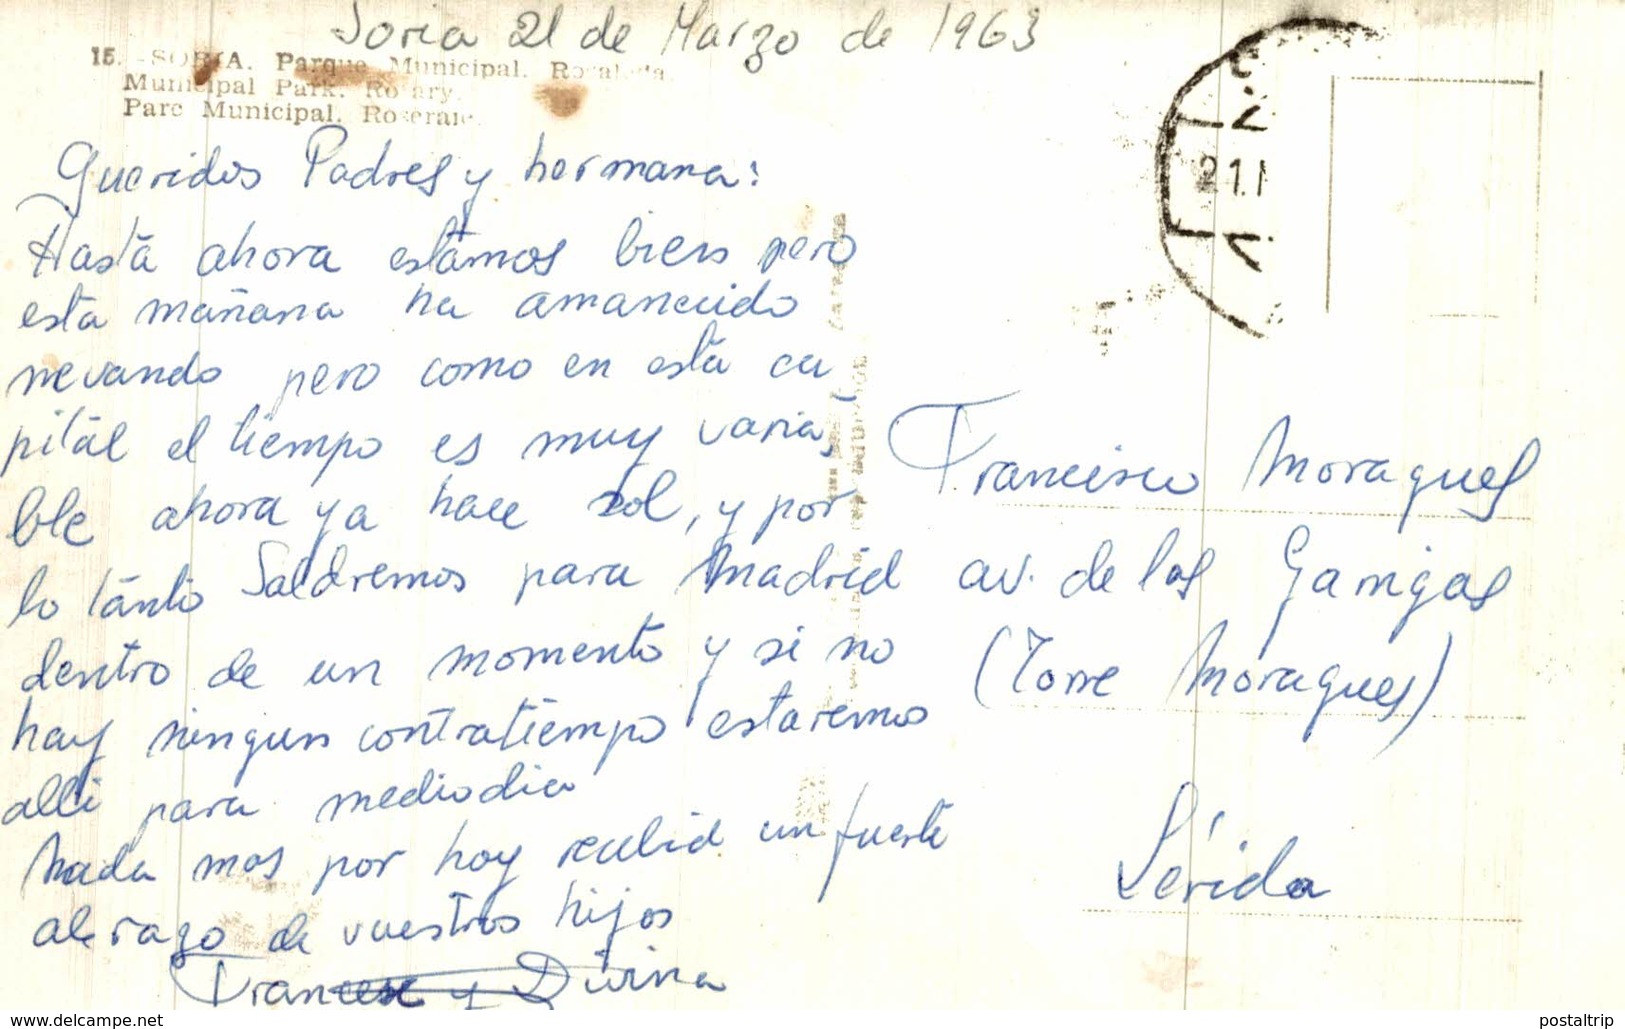 Soria 21 de Marzo de 1963
15. -SORIA. Parque Municipal. Rosaleda.
Municipal Park. Rosary.
Parc Municipal. Roseraie.
Queridos Padres y hermana:
Hasta ahora estamos bien pero
esta mañana ha amanecido
nevando pero como en esta ca
pital el tiempo es muy varia
ble ahora ya hace sol, y por
lo tanto Saldremos para Madrid
dentro de un momento y si no
hay ningun contratiempo estaremos
alli para mediodia
Nada mas por hoy recibid un fuerte
abrazo de vuestros hijos
y Divina
21.
Francisco Moragues
av. de los Garrigas
(Torre Moragues)
Lérida
www.delcampe.net
postaltrip